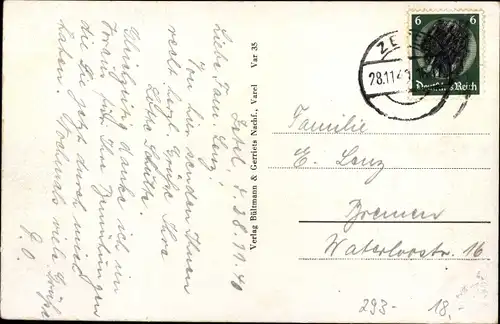 Zetel, d. 28.11.40
Liebe Fam. Lenz!
Von hier senden Ihnen
recht herzl. Grüße Ihre
Lotte
danke ich im
Voraus für Ihre Bemühungen
die Sie jetzt durch mich
haben. Nochmals viele Grüße
Verlag Bültmann & Gerriets Nachf., Varel Var 35
6 6
Deutsches Reich
ZE
28.11.4
Familie
E. Lenz
Bremen
Waterloostr. 16
293- 18,-